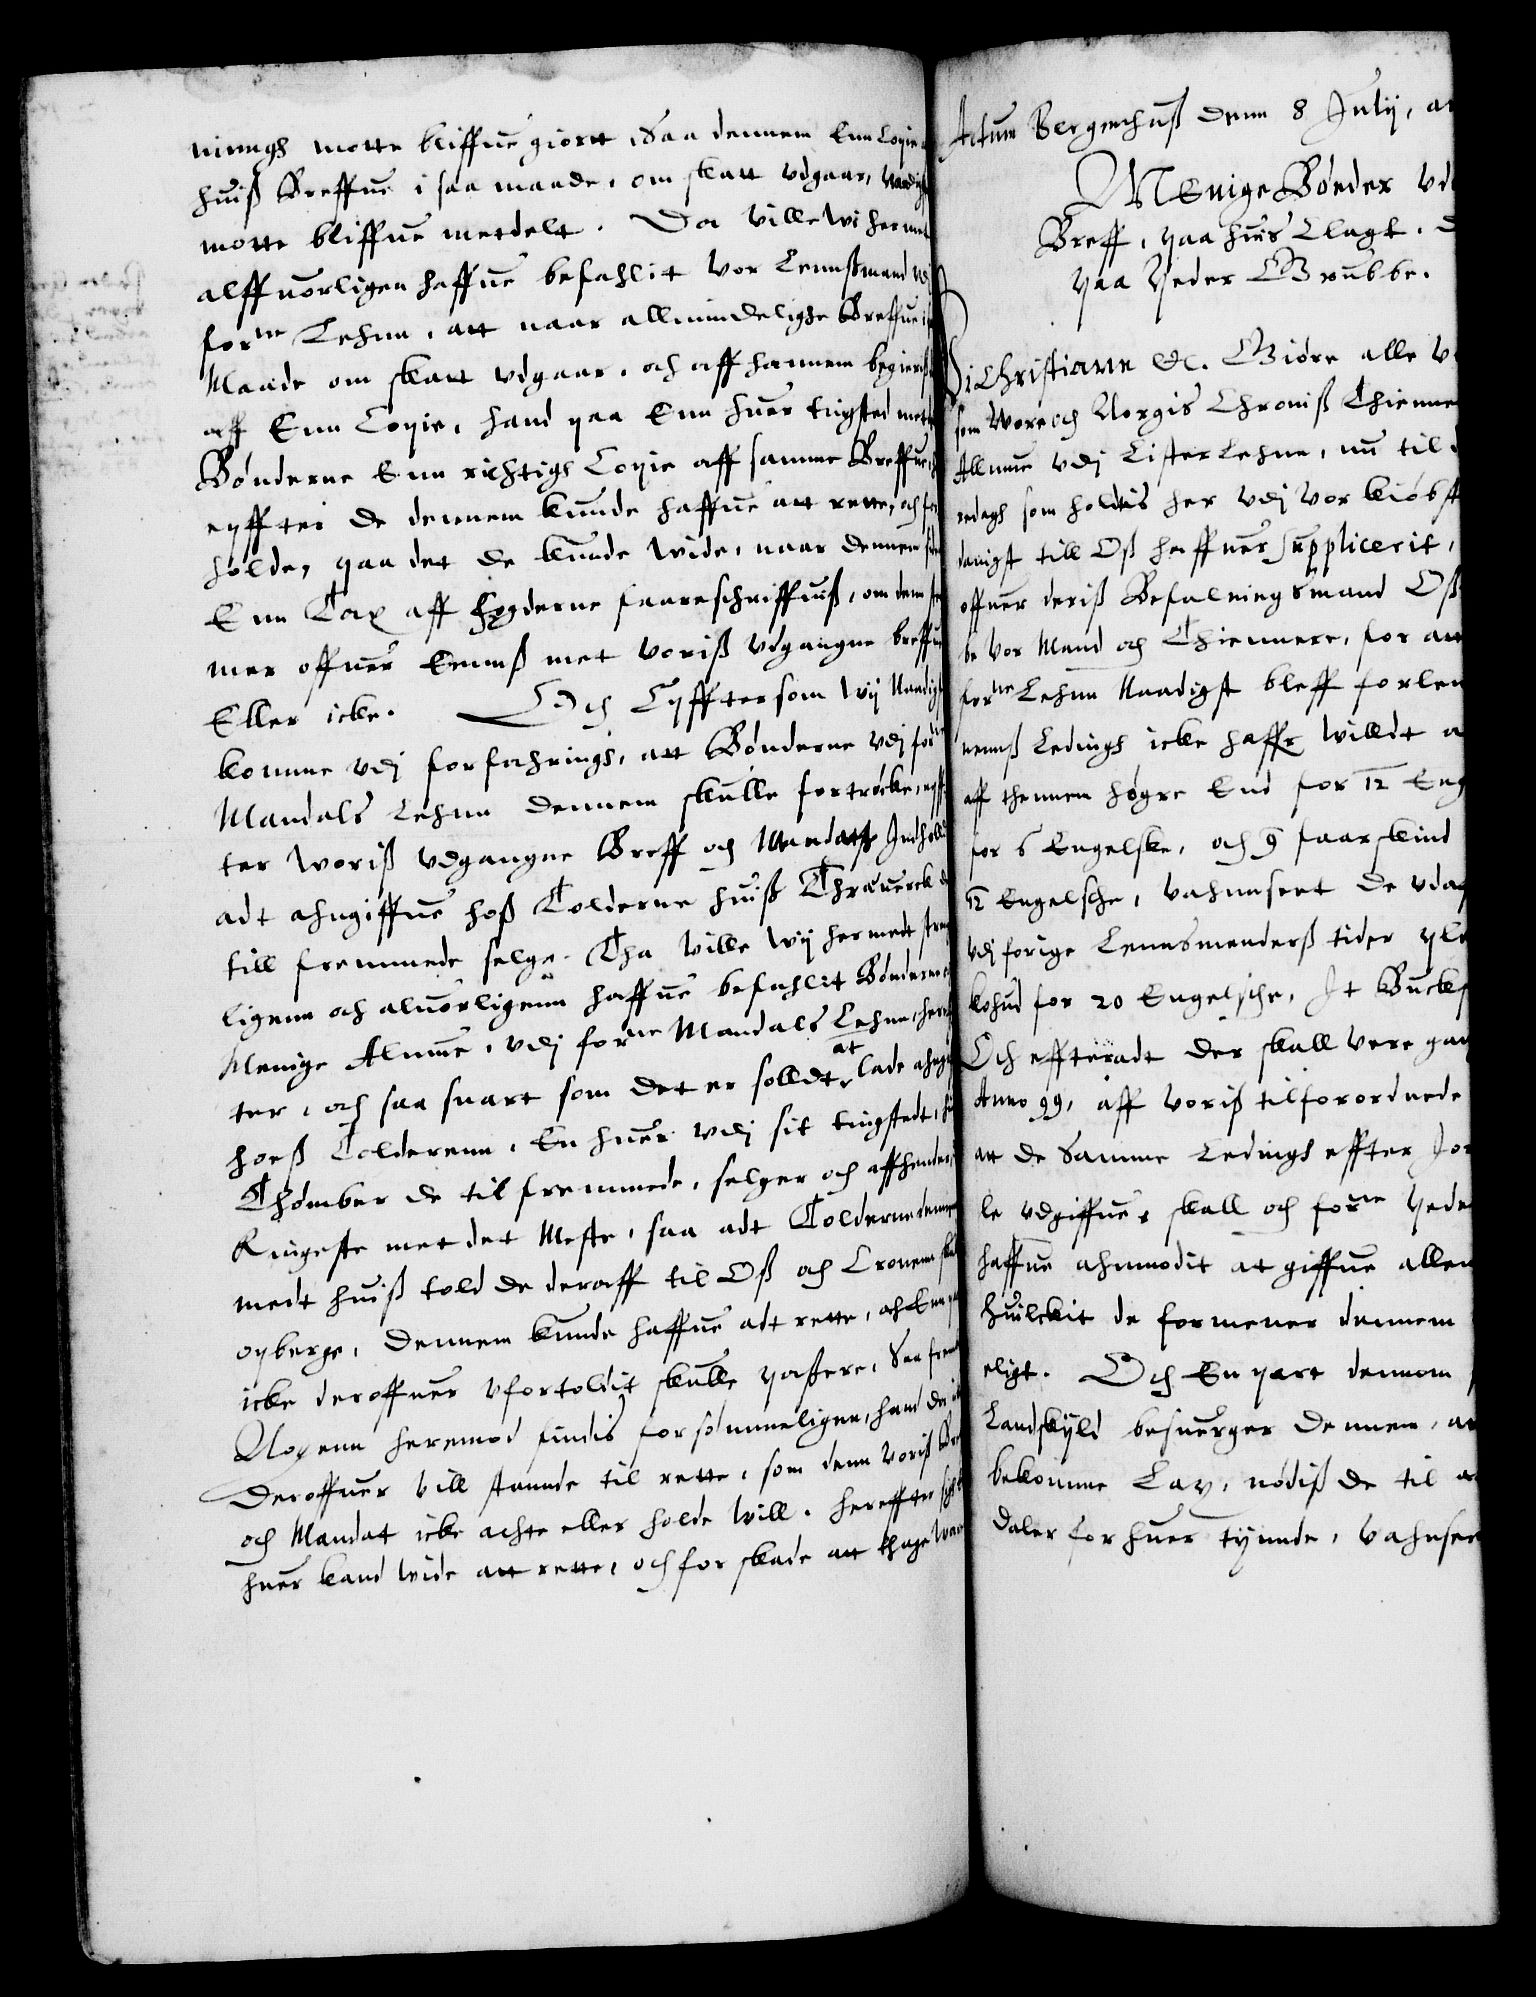 ninngs motte bliffue giortt, Saa dennem Enn Copie
huiß Breffue i saa maade, om skatt vdgaar, naadigst
motte bliffue metdelt. Da ville wi hermet
alffuorligen haffue befahlit vor Lennßmand vdj
forne Lehnn, att naar allmindelighe Breffue i
Maade om skatt vdgaar, och aff hannem begieris
aff Enn Copie, hand paa Enn huer tingsted metdele
Bønderne Enn richtigh Copie aff samme Breffue,
epffter de dennem kunde haffue att rette, och for
holde, paa det de kunde wide, naar dennem
Enn Tax aff fogderne faareschriffuiß, om den
mer offuer Eennß met voriß vdgangne breffue
Eller icke. Och Epfftersom wij Naadigst
komme vdj forfahringh, att Bønderne vdj forne
Mandals Lehnn dennem skulle fortrøcke, epff
ter woriß vdgangne Breff och Mandatß Indhold
adt ahngiffue hoß Tolderne huiß Thrauerck de
till fremmede selge. Tha wille wij hermedt streng
ligenn och aluorligenn haffue befahlet Bønderne
Menige Almue, vdj forne Mandals Lehnn, heref
ter, och saa snart som det er solldt, at lade ahngif
hoeß Tolderenn, En huer vdj sit tingstedt,
Thømber de til fremmede, selger och affhender,
Ringeste met det Meste, saa adt Tolderne dennem
medt huiß told de deraff til Oß och Cronenn skal
opberge, dennem kunde haffue adt rette, och Enn
icke deroffuer vfortoldit skulle passere, Saa frem
Nogenn heremod findis forsømmeligen, hand der
Deroffuer vill stannde til rette, som denn voriß Bre
och Mandat icke achte eller holde will. Hereffter
huer kand wide att rette, och for skade att thage ware
Actum Bergenhuß denn 8 Julij, an
MEnige Bønder vd
Breff, paa huis Clagt. D
paa Peder Grubbe.
Wi Christiann &c. Giøre alle v
som wore och Norgis Chroniß Thienner
Allmue vdj Lister Lehne, nu til
redagh som holdis her vdj vor kiøbst
danigst till Oß haffuer suppliceret,
offuer deriß Befalningsmand Oß
be vor Mand och Thiennere, for att
forne Lehnn Naadigst bleff forlen
nemß Ledingh icke haffr willdt a
aff thennem høgre End for 12 Eng
for 6 Engelske, och 9 faarskind
12 Engelsche, vahnnseet de vdaf
vdj forige Lennsmenderß tider ple
kohud for 20 Engelsche, It Bucks
Och effteradt der skall vere gan
Anno 99, aff voriß tilforordnede
att de Samme Ledingh effter Jor
le vdgiffue, skall och forne Pede
haffue ahnmodit at giffue allen
Huilckit de formener dennem
eligt. Och En part dennom
Landskÿld besuerger dennem, at
bekomme Lax, nødiß de til at
daler for huer tynnde, vahnsee